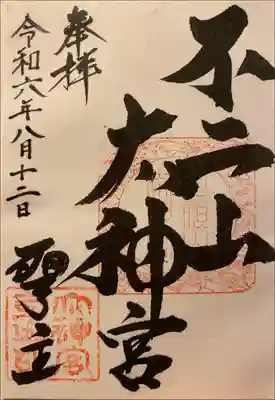 不二山
大神宮
聖立
奉拝
令和六年八月十二日